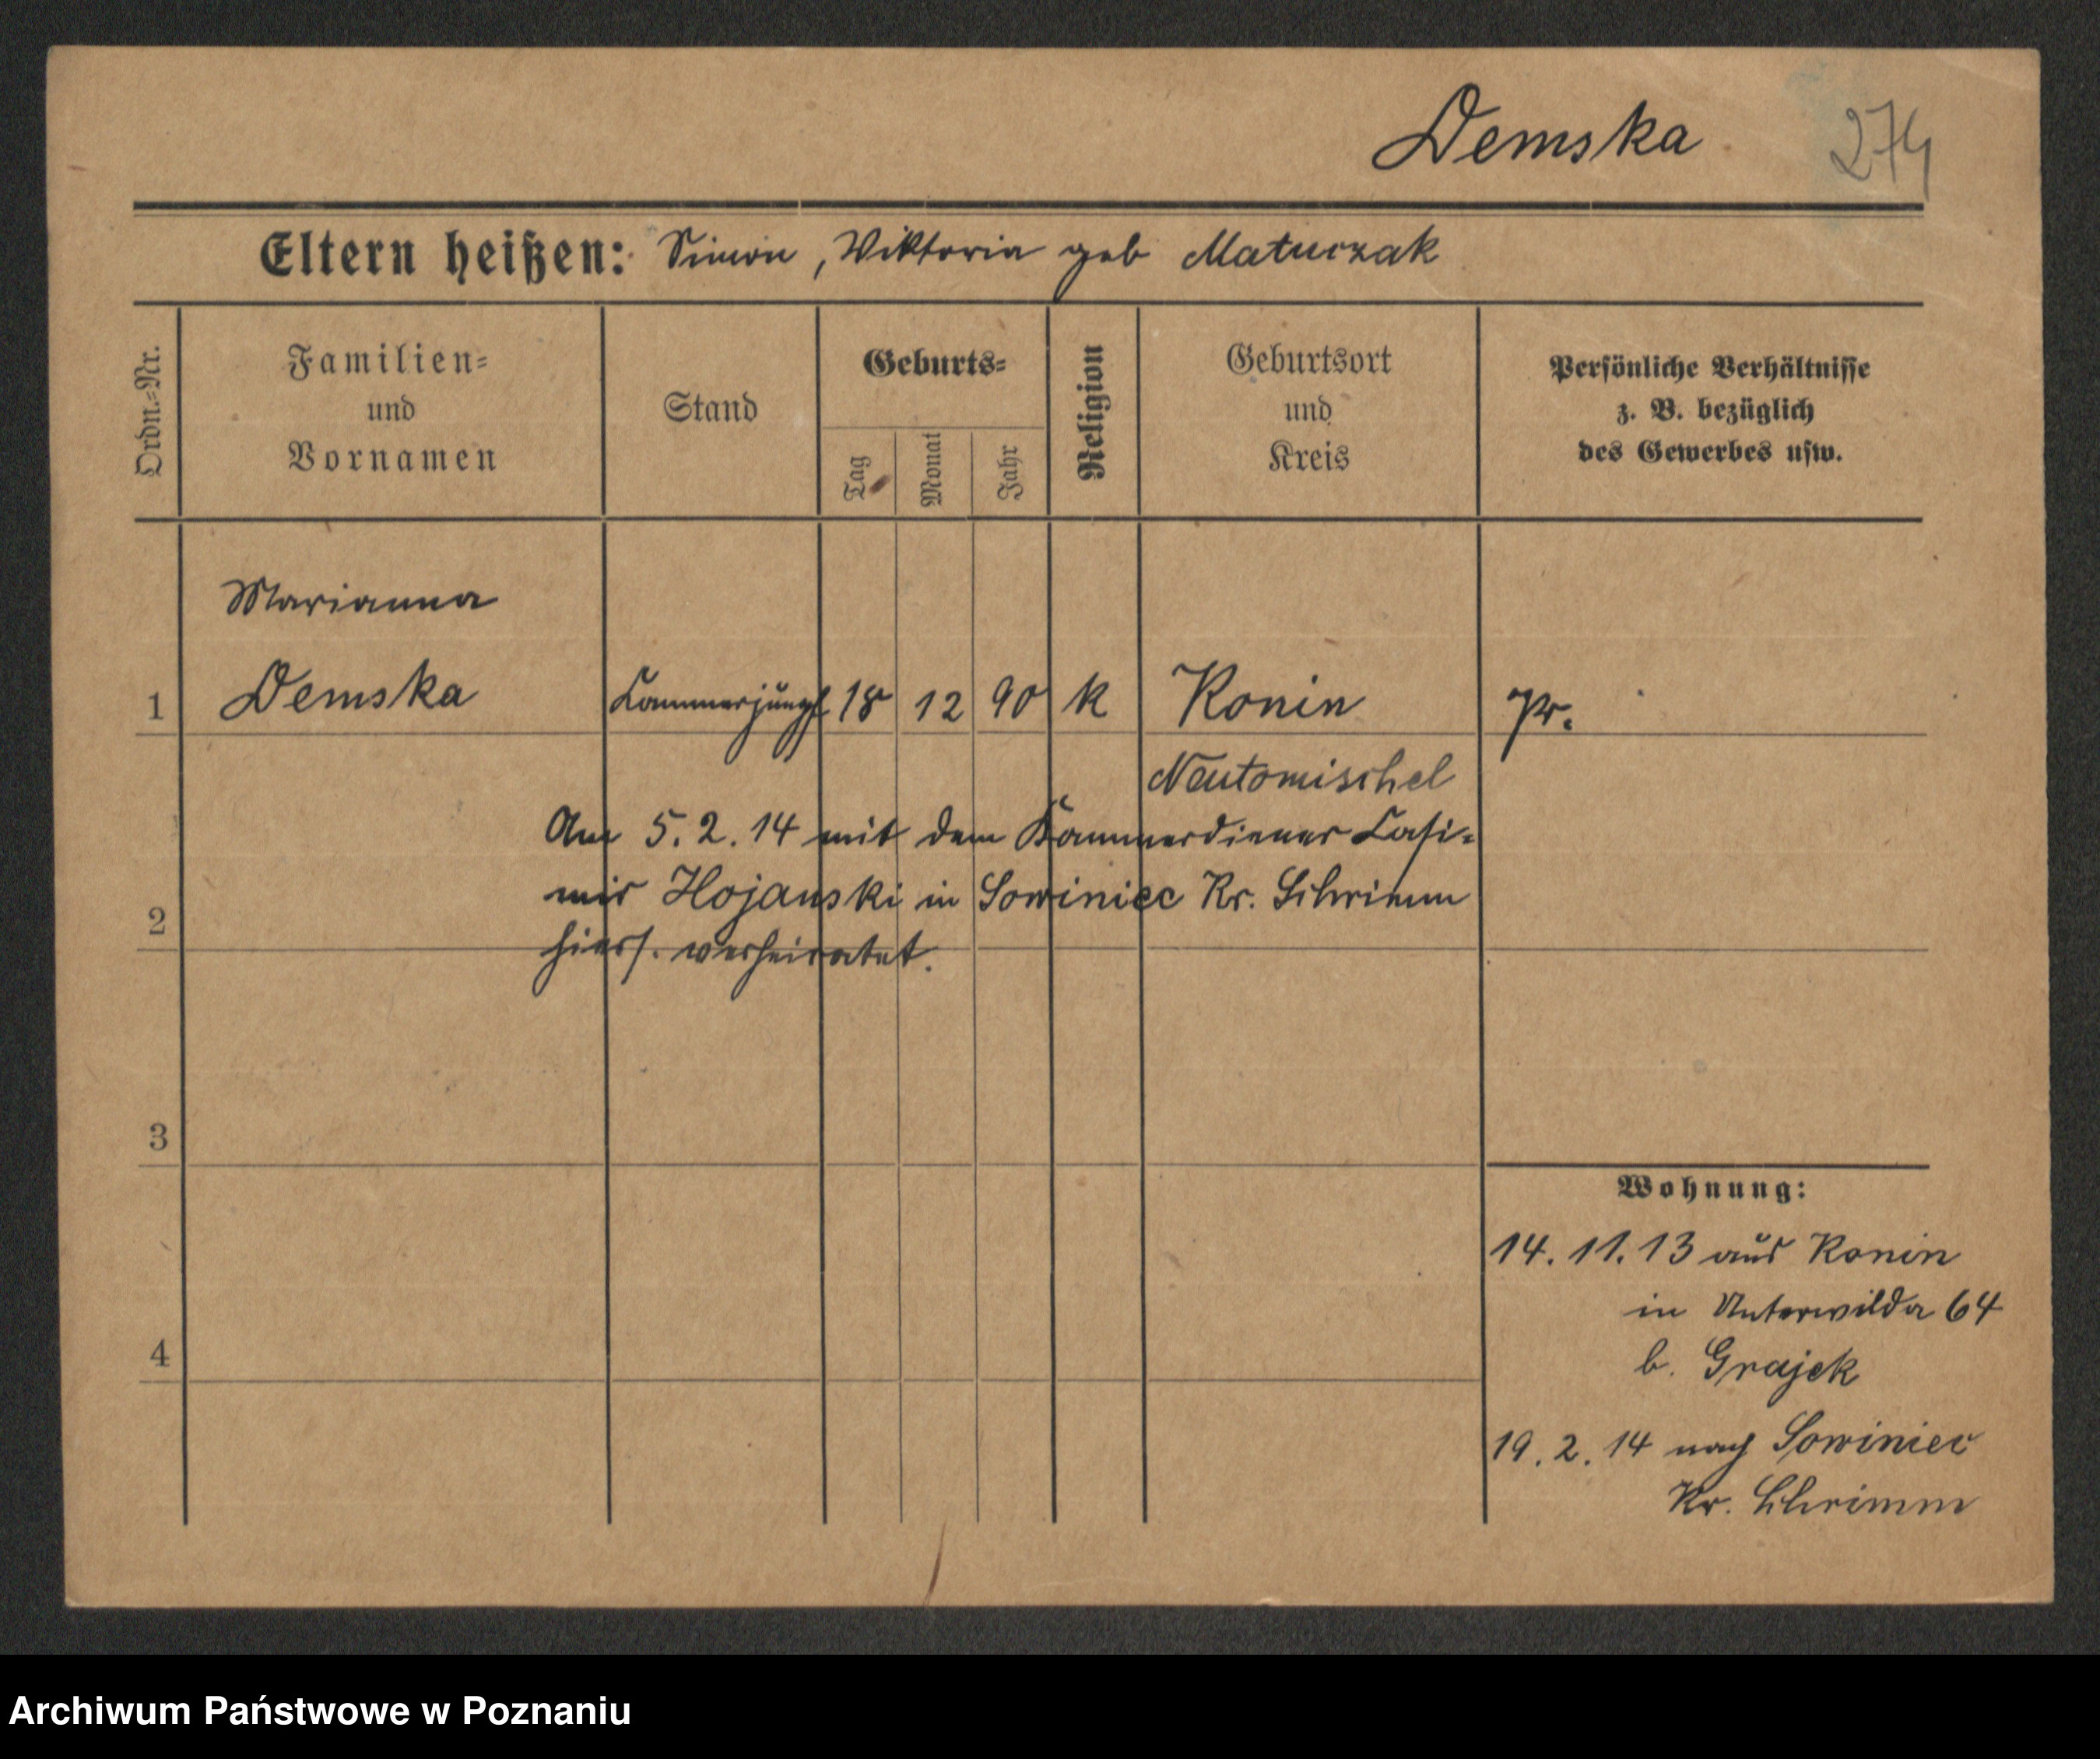 Demska 274
Eltern heißen: Simon, Viktoria geb Maturzak
Ordn.-Nr.
Familien-
und
Vornamen
Stand
Geburts-
Tag
Monat
Jahr
Religion
Geburtsort
und
Kreis
Persönliche Verhältnisse
z. B. bezüglich
des Gewerbes usw.
Marianna
1 Demska Kammerjungf 18 12 90 k Konin Pr.
Neutomischel
Am 5.2.14 mit dem Kammerdiener Casi-
mir Hojanski in Sowiniec Kr. Schrimm
2
hiers. verheiratet.
3
Wohnung:
14.11.13 aus Konin
in Unterwilda 64
4
b. Grajek
19.2.14 nach Sowiniec
Kr. Schrimm
Archiwum Państwowe w Poznaniu